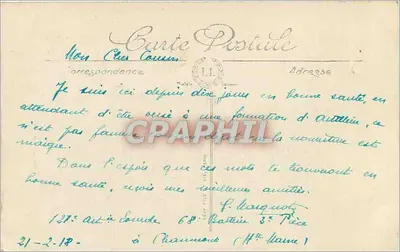 Carte Postale
Mon Cher Cousin
Correspondance
Adresse
LL
Je suis ici depuis dix jours en bonne santé, en
attendant d'être versé à une formation d'Artillerie, ce
n'est pas fameux la nourriture est
maigre.
CPARHIL
Dans l'espoir que ces mots te trouveront en
bonne santé, reçois mes meilleures amitiés.
128e Art. Lourde 68 Batterie 3e Pièce
21-2-18- à Chaumont (Hte Marne)